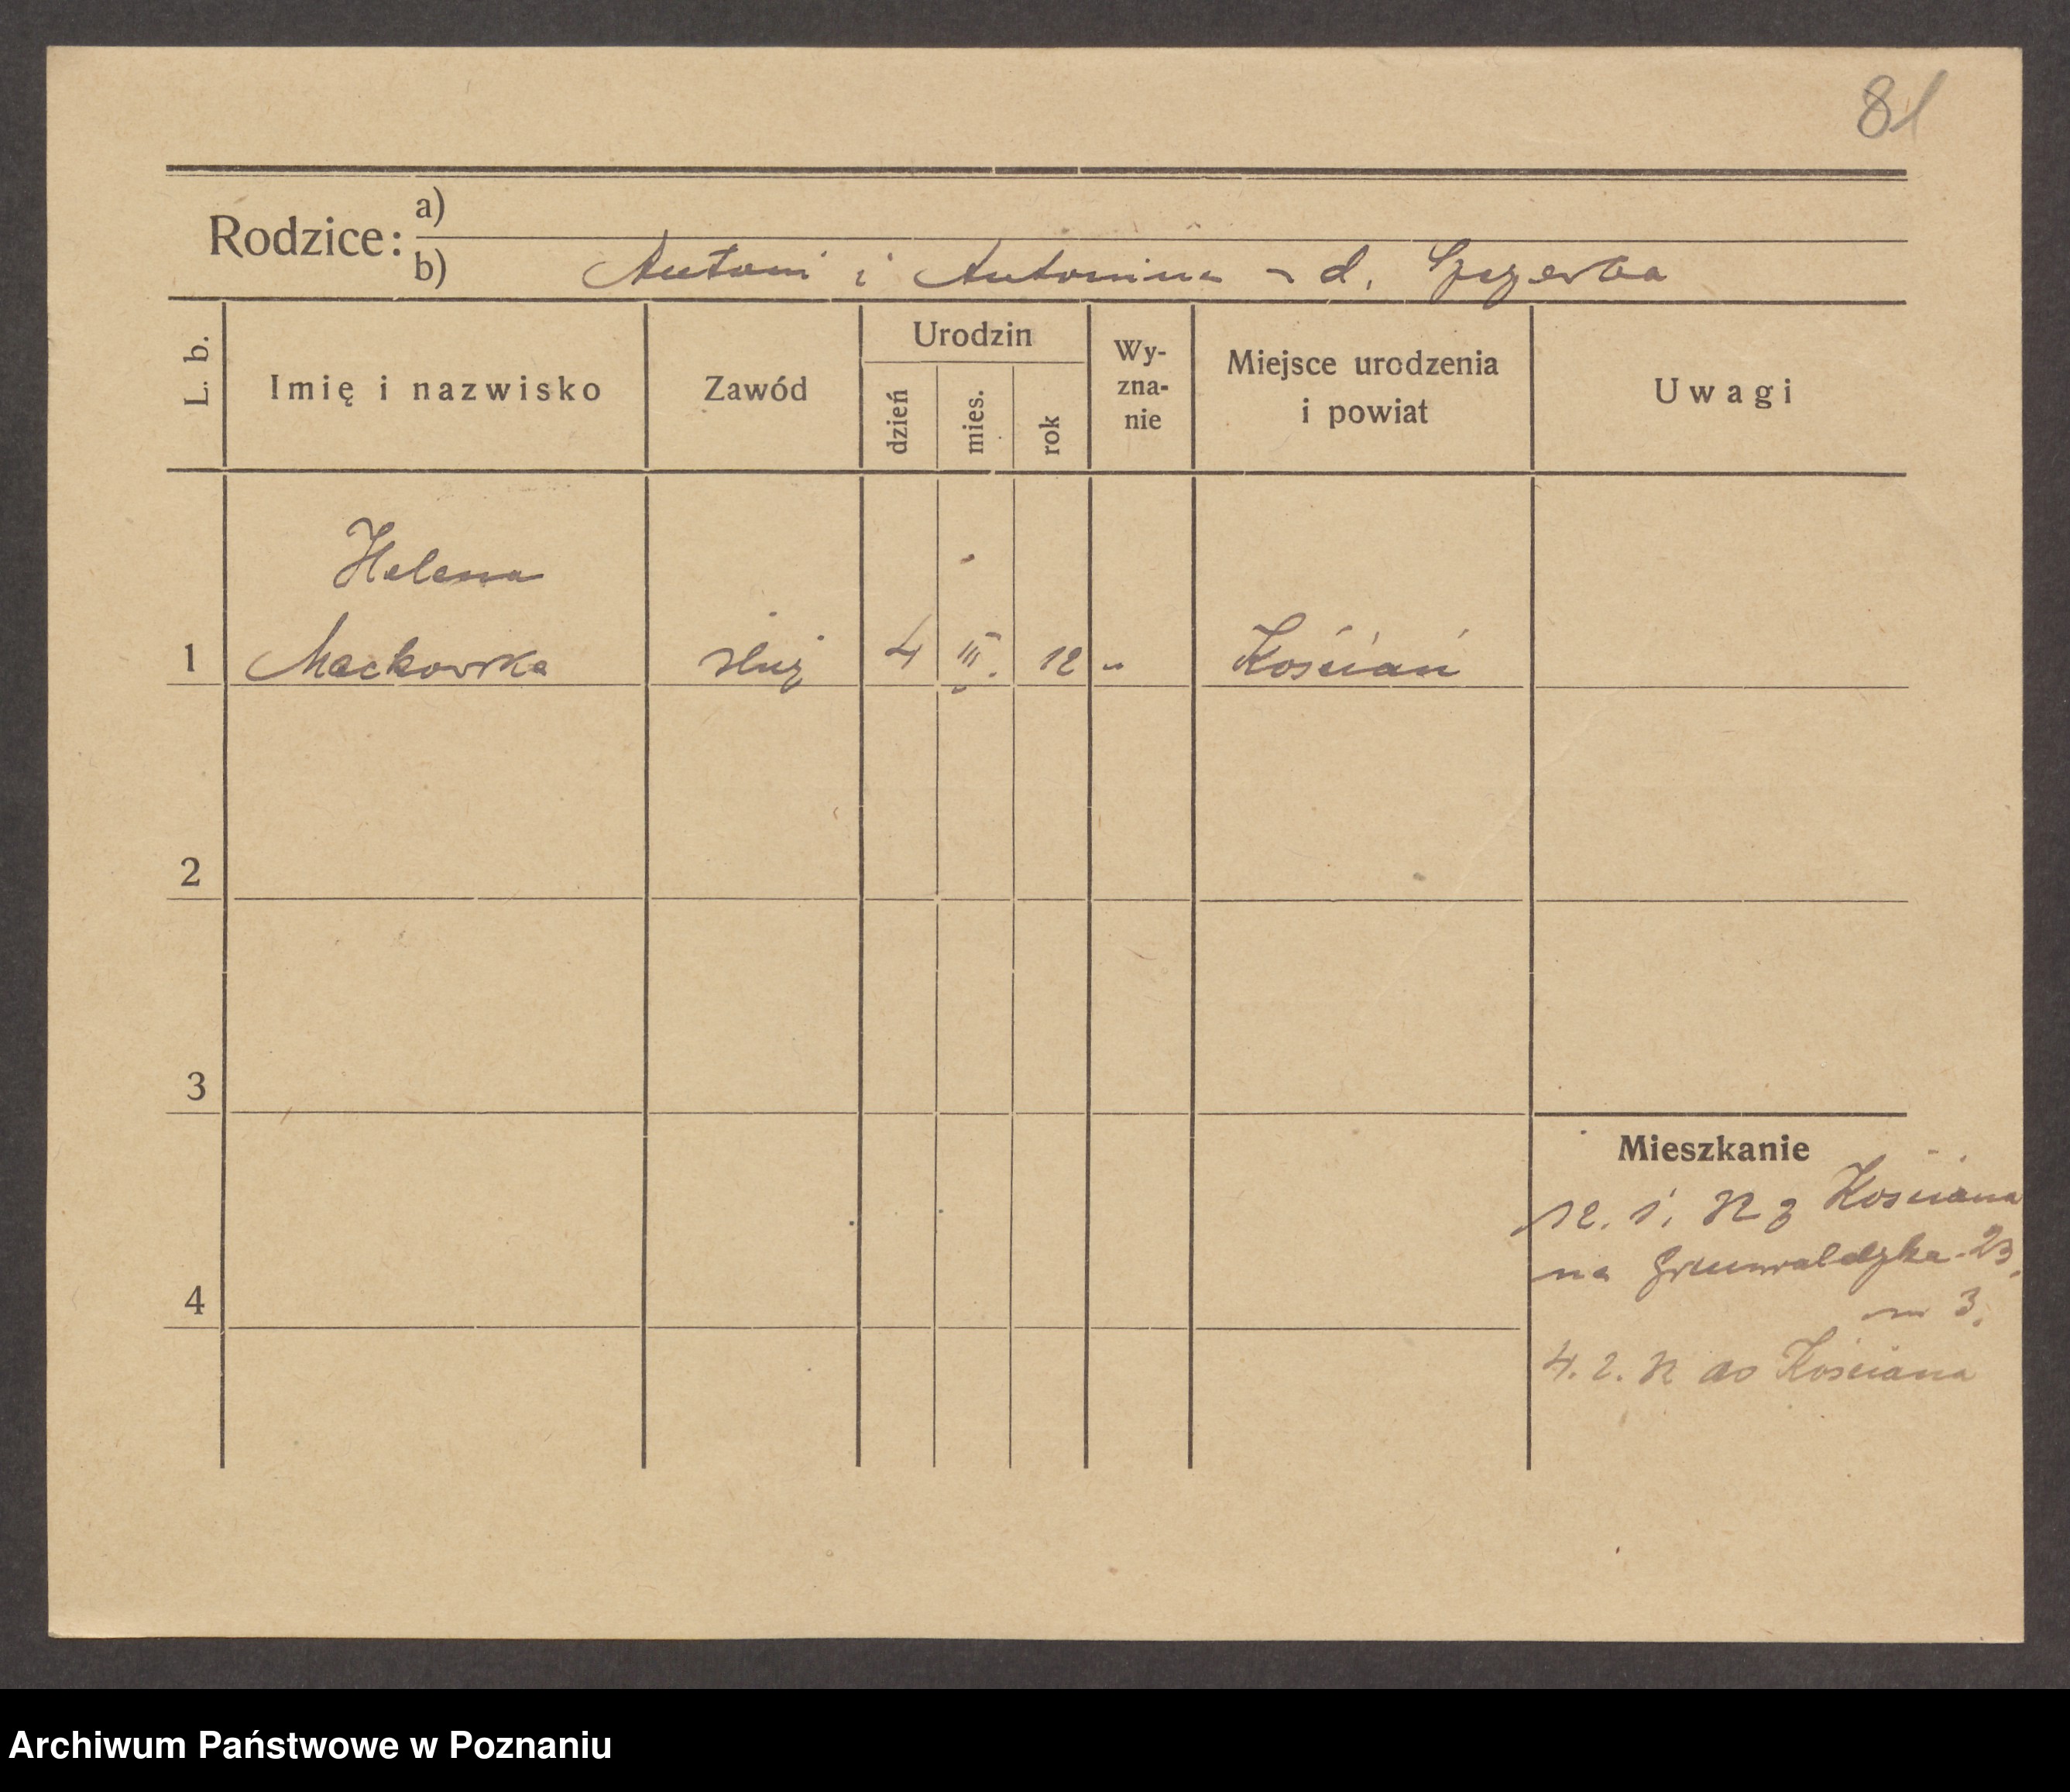 81
Rodzice:
a)
b) Antoni i Antonina z d. Szczerba
L. b.
Imię i nazwisko
Zawód
Urodzin
dzień
mies.
rok
Wy-
zna-
nie
Miejsce urodzenia
i powiat
Uwagi
Helena
1 Mackowska służ 4 III. 12 " Kościan
2
3
4
Mieszkanie
12. 1. 32 z Kościana
na Grunwaldzka 23,
m 3.
4. 2. 32 do Kościana
Archiwum Państwowe w Poznaniu